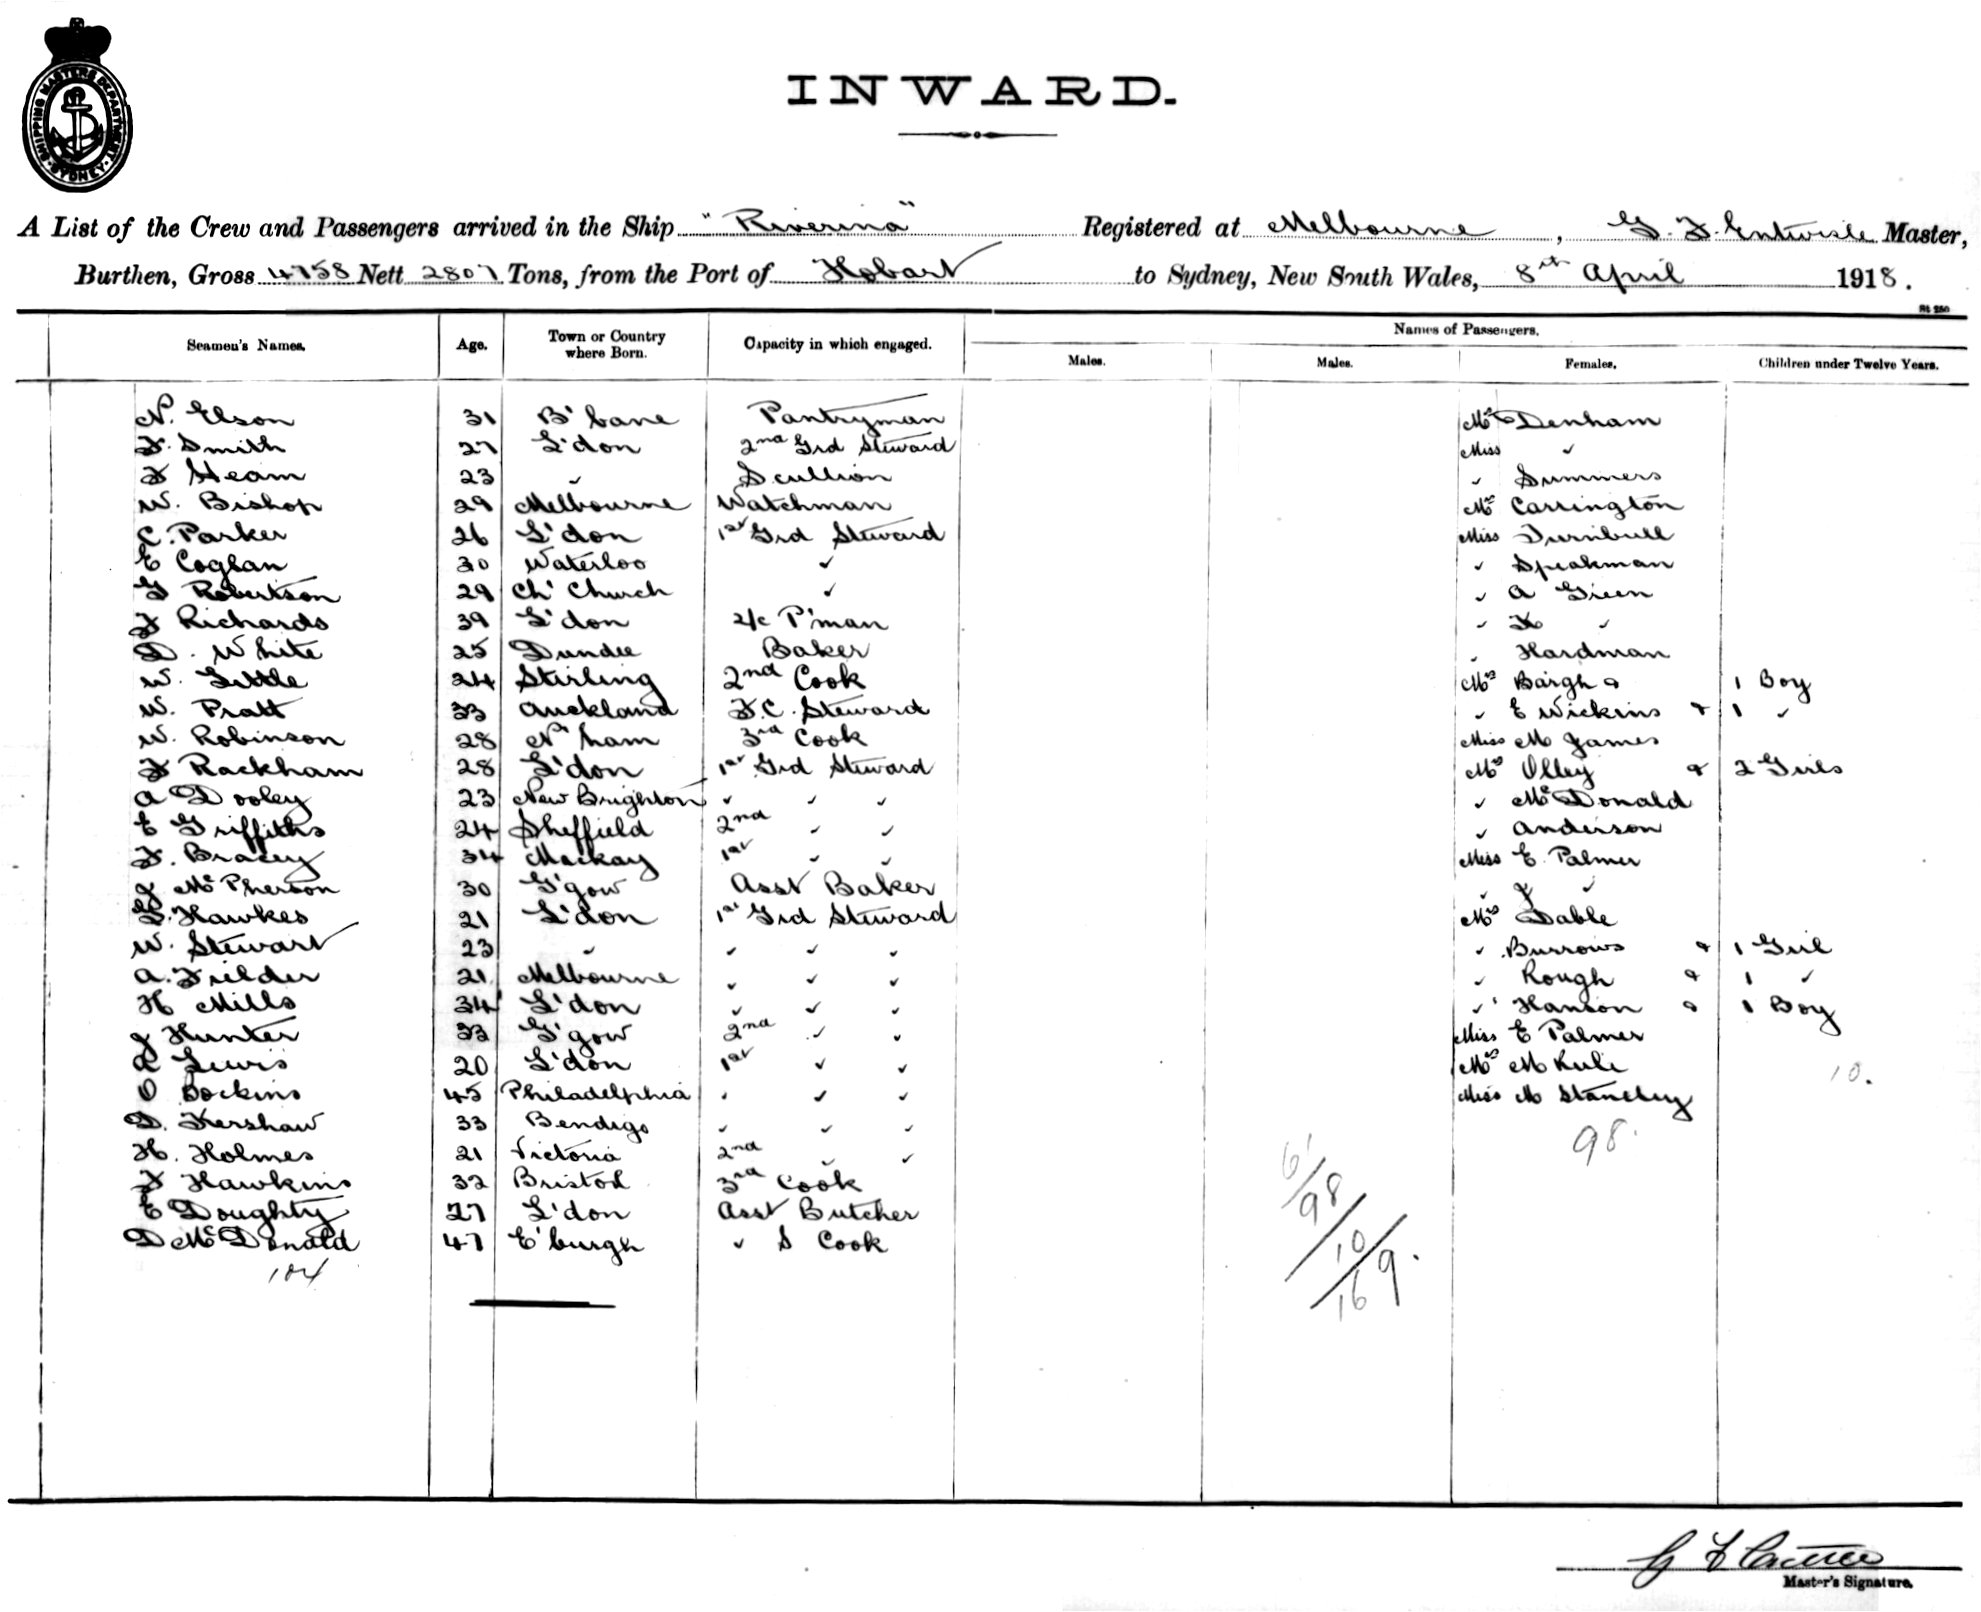 SHIPPING MASTERS DEPARTMENT · SYDNEY ·
INWARD.
A List of the Crew and Passengers arrived in the Ship "Riverina" Registered at Melbourne, G. F. Entwisle Master,
Burthen, Gross 4758 Nett 2807 Tons, from the Port of Hobart to Sydney, New South Wales, 8th April 1918.
St 250
Seamen's Names. Age. Town or Country where Born. Capacity in which engaged. Names of Passengers.
Males. Males. Females. Children under Twelve Years.
N. Elson 31 B'bane Pantryman Mrs Denham
F. Smith 27 L'don 2nd Grd Steward Miss "
F Heam 23 " Scullion " Summers
W. Bishop 29 Melbourne Watchman Mrs Carrington
C. Parker 26 L'don 1st Grd Steward Miss Turnbull
E Coglan 30 Waterloo " " Speakman
G Robertson 29 Ch' Church " " A Green
F Richards 39 L'don 2/c P'man " F "
D. White 25 Dundee Baker " Hardman
W. Little 24 Stirling 2nd Cook Mrs Bargh & 1 Boy
W. Pratt 33 Auckland F.C. Steward " E Wickins & 1 "
W. Robinson 28 N'ham 3rd Cook Miss M James
F Rackham 28 L'don 1st Grd Steward Mrs Olley & 2 Girls
A Dooley 23 New Brighton " " " " McDonald
E Griffiths 24 Sheffield 2nd " " " Anderson
F. Bracey 34 Mackay 1st " " Miss E. Palmer
J McPherson 30 G'gow Asst Baker " J "
G. Hawkes 21 L'don 1st Grd Steward Mrs Dable
W. Stewart 23 " " " " " Burrows & 1 Girl
A. Fielder 21 Melbourne " " " " Rough & 1 "
H Mills 34 L'don " " " " Hanson & 1 Boy
J Hunter 33 G'gow 2nd " " Miss E Palmer
R Lewis 20 L'don 1st " " Mrs M Kule
O Bockins 45 Philadelphia " " " Miss M Stanley
D. Kershaw 33 Bendigo " " "
H. Holmes 21 Victoria 2nd " "
F Hawkins 32 Bristol 3rd Cook
E Doughty 27 L'don Asst Butcher
D McDonald 47 E'burgh " S Cook
104
98.
10.
61/98/10/169.
Master's Signature.